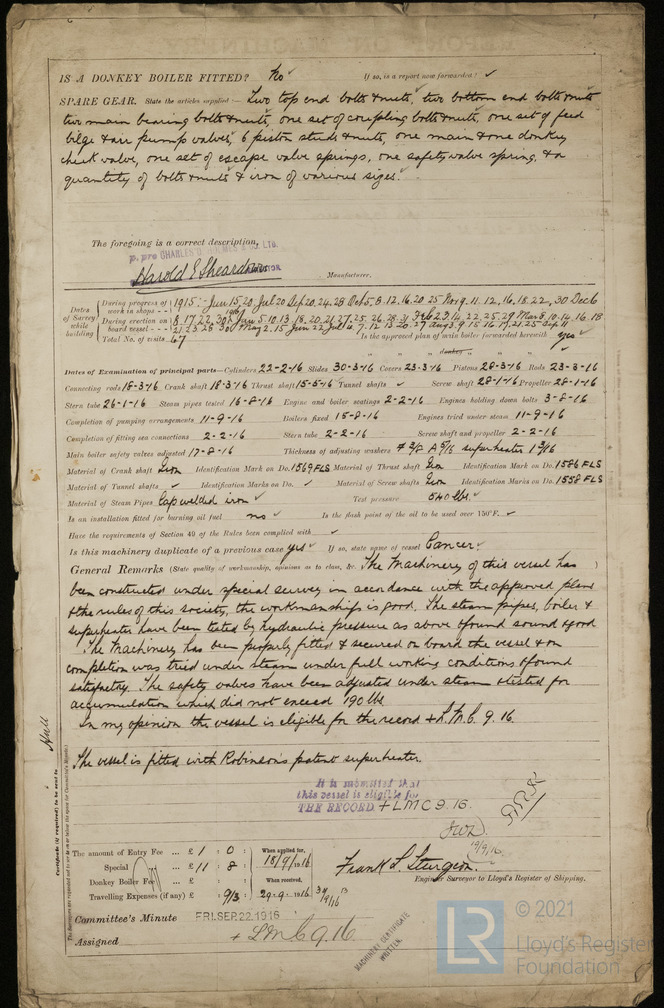 IS A DONKEY BOILER FITTED? No ✓ If so, is a report now forwarded? ✓
SPARE GEAR. State the articles supplied:— Two top end bolts & nuts, two bottom end bolts & nuts
two main bearing bolts & nuts, one set of coupling bolts & nuts, one set of feed
bilge & air pump valves, 6 piston studs & nuts, one main & one donkey
check valve, one set of escape valve springs, one safety valve spring, & a
quantity of bolts & nuts & iron of various sizes.
The foregoing is a correct description,
p. pro CHARLES D. HOLMES & CO. LTD.
Harold E Sheardown Manufacturer.
Dates of Survey while building
During progress of work in shops - - 1915:- Jun 15, 20, Jul 20 Sep 20, 24, 28 Oct 5, 8, 12, 16, 20, 25 Nov 9, 11, 12, 16, 18, 22, 30 Dec 6
During erection on board vessel - - 8, 17, 22, 30 1916 Jan 5, 10, 13, 18, 20, 21, 27, 25, 26, 28, 31 Feb 2, 9, 14, 22, 25, 29 Mar 8, 10, 14, 16, 18
21, 23, 28, 30 May 2, 15 Jun 22 Jul 4, 7, 12, 13, 20, 27 Aug 3, 9, 15, 16, 17, 21, 25 Sep 11
Total No. of visits 67 Is the approved plan of main boiler forwarded herewith yes ✓
" " " donkey " " "
Dates of Examination of principal parts—Cylinders 22-2-16 Slides 30-3-16 Covers 23-3-16 Pistons 28-3-16 Rods 23-3-16
Connecting rods 18-3-16 Crank shaft 18-3-16 Thrust shaft 15-5-16 Tunnel shafts ✓ Screw shaft 28-1-16 Propeller 28-1-16
Stern tube 26-1-16 Steam pipes tested 16-8-16 Engine and boiler seatings 2-2-16 Engines holding down bolts 3-8-16
Completion of pumping arrangements 11-9-16 Boilers fixed 15-8-16 Engines tried under steam 11-9-16
Completion of fitting sea connections 2-2-16 Stern tube 2-2-16 Screw shaft and propeller 2-2-16
Main boiler safety valves adjusted 17-8-16 Thickness of adjusting washers F 3/8 A 5/16 superheater 1 3/16
Material of Crank shaft Iron Identification Mark on Do. 1569 FLS Material of Thrust shaft Iron Identification Mark on Do. 1586 FLS
Material of Tunnel shafts ✓ Identification Marks on Do. ✓ Material of Screw shafts Iron Identification Marks on Do. 1558 FLS
Material of Steam Pipes Lap welded iron ✓ Test pressure 540 lbs. ✓
Is an installation fitted for burning oil fuel no ✓ Is the flash point of the oil to be used over 150°F. ✓
Have the requirements of Section 49 of the Rules been complied with ✓
Is this machinery duplicate of a previous case yes ✓ If so, state name of vessel Cancer.
General Remarks (State quality of workmanship, opinions as to class, &c. The machinery of this vessel has )
been constructed under special survey in accordance with the approved plans
& the rules of this society, the workmanship is good. The steam pipes, boiler &
superheater have been tested by hydraulic pressure as above & found sound & good
The Machinery has been properly fitted & secured on board the vessel & on
completion was tried under steam under full working conditions & found
satisfactory. The safety valves have been adjusted under steam & tested for
accumulation which did not exceed 190 lbs
In my opinion the vessel is eligible for the record + L.M.C. 9. 16.
The vessel is fitted with Robinson's patent superheater.
It is submitted that
this vessel is eligible for
THE RECORD. + LMC 9.16.
19/9/16
Hull
Certificate (if required) to be sent to
The amount of Entry Fee ... £ 1 : 0 : When applied for,
Special ... £ 11 : 8 : 18/9/1916
Donkey Boiler Fee ... £ : : When received,
Travelling Expenses (if any) £ : 9/3 : 29-9-1916
Frank L. Sturgeon.
Engineer Surveyor to Lloyd's Register of Shipping.
Committee's Minute FRI. SEP. 22 1916
Assigned + LMC 9.16
MACHINERY CERTIFICATE
WRITTEN.
LR
© 2021
Lloyd's Register
Foundation